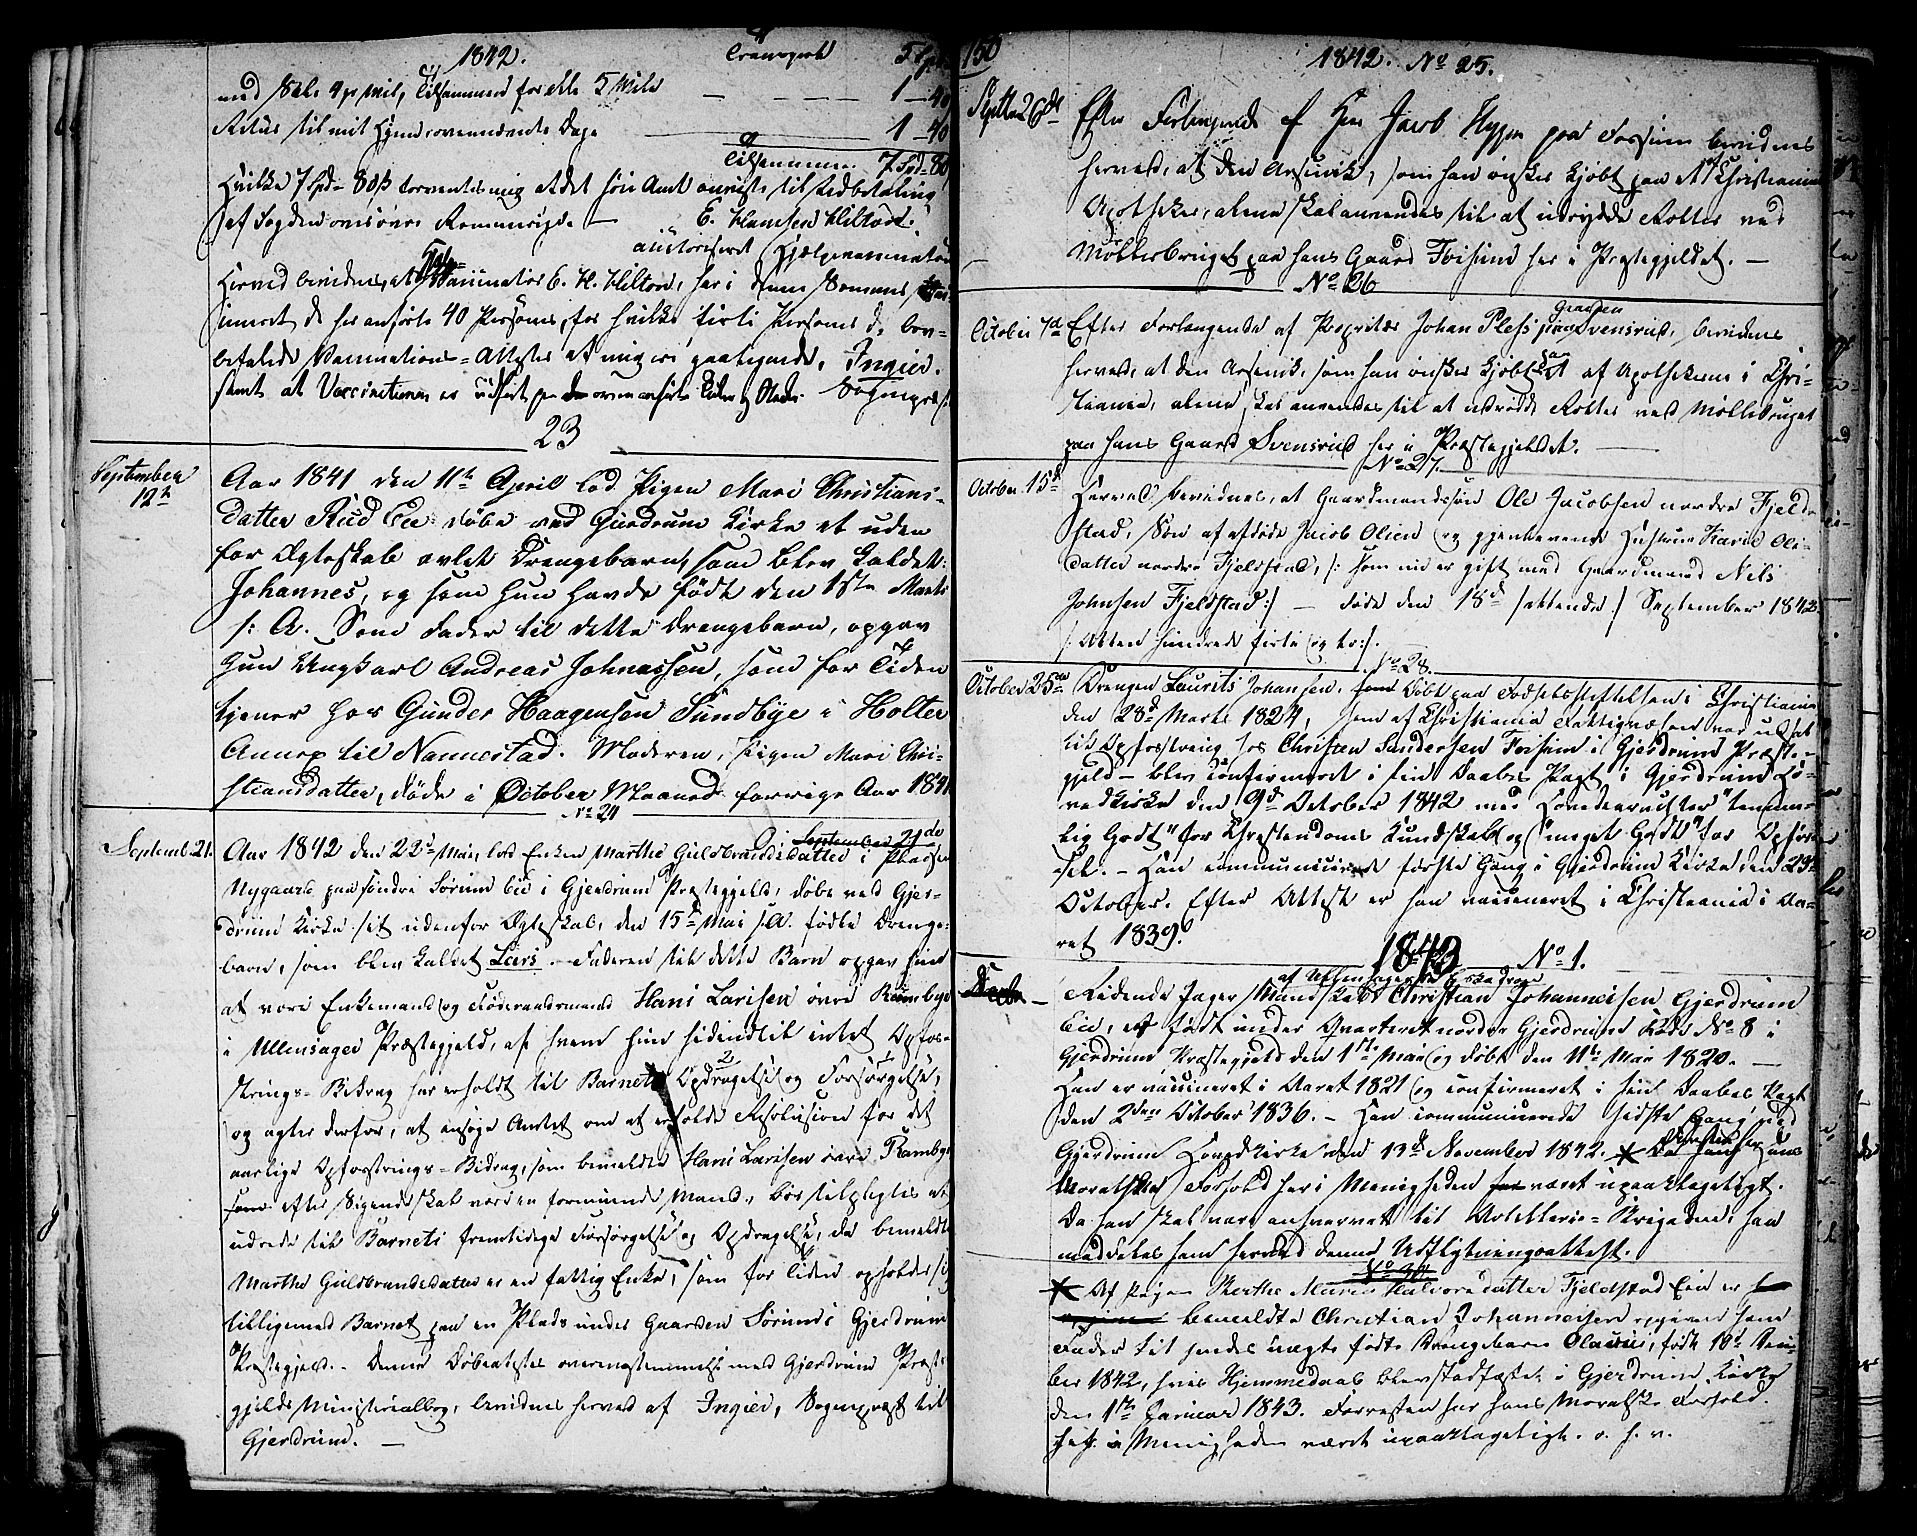 1842.
Transport
med 8 Sk. 4 pr Mil, tilsammen for alle 5 Mile — 1 — 40
Retur til mit Hjem ovennævnte Dage — 1 — 40
Tilsammen 7 Spd - 80
Hvilke 7 Spd - 80 ß forventes mig af det høie Amt anviist til Udbetaling
af vedkommende
E. Hansen Hilton
autoriseret Hjælpevaccinatør
Herved bevidnes, at Vaccinatør E. H. Hilton, har i denne Sommer
de her anførte 40 Personer, for hvilke firti Personer de
befalede Vaccinations-Attester af mig ere paategnede, Ingier.
samt at Vaccinationen er udført paa de ovenanførte Tider og Steder. Sognepræst
23
September 12te
Aar 1841 den 11te April lod Pigen Mari Christians-
datter Rud Eie døbe ved Gjerdrum Kirke et uden
for Ægteskab avlet Drengebarn, som blev kaldet:
Johannes, og som hun havde født den 1ste Marts
s: A. Som Fader til dette Drengebarn, opgav
hun Ungkarl Andreas Johnassen, som for Tiden
tjener hos Gunder Haagensen Sundbye i Holter
Annex til Nannestad. Moderen, Pigen Mari Chri-
stiansdatter, døde i October Maaned forrige Aar 1841
No 24
September 21de
Septemb. 21.
Aar 1842 den 22d Mai, lod Enken Marthe Guldbrandsdatter i Pladsen
Nygaard paa søndre Sørum Eie i Gjerdrum Præstegjeld, døbe ved Gjer-
drum Kirke sit udenfor Ægteskab, den 15d Mai s.A. fødte Drenge-
barn, som blev kaldet Lars. Faderen til dette Barn opgav hun
at være Enkemand og Føderaadsmand Hans Larsen øvre Rambye
i Ullensager Præstegjeld, af hvem hun hidindtil intet Opfos-
trings-Bidrag har erholdt til Barnets Opdragelse og Forsørgelse,
og agter derfor, at ansøge Amtet om at erholde Resolution for det
aarlige Opfostrings-Bidrag, som bemeldte Hans Larsen øvre Rambye
som efter Sigende skal være en formuende Mand, bør tilpligtes at
udrede til Barnets fremtidige Forsørgelse og Opdragelse, da bemeldte
Marthe Guldbrandsdatter er en fattig Enke, som for Tiden opholder sig
tilligemed Barnet paa en Plads under Gaarden Sørum i Gjerdrum
Præstegjeld. Denne Døbeattests overensstemmelse med Gjerdrum Præste-
gjelds Ministerialbog, bevidnes herved af Ingier, Sognepræst til
Gjerdrum. —
150
1842. No 25.
Septbr 26de
Efter Forlangende af Herr Jacob Nygen paa Fossum bevidnes
herved, at den Arsenik, som han ønsker kjøbt paa Christiania
Apotheker, alene skal anvendes til at udrydde Rotter ved
Møllebruget paa hans Gaard Foisum her i Præstegjeldet. —
No 26
October 7d
Efter Forlangende af Proprietær Johan Pless paa Gaarden Svensrud, bevidnes
herved, at den Arsenik, som han ønsker kjøbt af Apothekerne i Chri-
stiania, alene skal anvendes til at udrydde Rotter ved Møllebruget
paa hans Gaard Svensrud her i Præstegjeldet. —
No 27.
October 15d
Herved bevidnes, at Gaardmandssøn Ole Jacobsen nordre Fjeld-
stad, Søn af afdøde Jacob Olsen og gjenlevende Hustru Karie Ols-
datter nordre Fjeldstad, /: som nu er gift med Gaardmand Nils
Johnsen Fjeldstad :/ — døde den 18d /attende/ September 1842
/: Atten hundrede firti og to :/.
No 28.
October 25de
Drengen Laurits Johansen, døbt paa Fødselsstiftelsen i Christiania
den 28d Marts 1824, som af Christiania Fattigvæsen var udsat
til Opfostring hos Christen Gundersen Foisum i Gjerdrum Præste-
gjeld — blev confirmeret i sin Daabes Pagt i Gjerdrum Ho-
vedkirke den 9d October 1842 med Hovedcarakter "temme-
lig Godt" for Christendoms Kundskab og "meget Godt" for Opfør-
sel. — Han communicerede første Gang i Gjerdrum Kirke den 23d
October. Efter Attest er han vaccineret i Christiania i Aa-
ret 1839.
1843 No 1.
Ridende Jæger Mandskabet af Ullensagerske Escadron Christian Johannesen Gjerdrum
Eie, er født under Qvarteret nordre Gjerdrum Rode No 8 i
Gjerdrum Præstegjeld den 1ste Mai og døbt den 11te Mai 1820. —
Han er vaccineret i Aaret 1821 og confirmeret i sin Daabes Pagt
den 2den October 1836. — Han communicerede sidste Gang ved
Gjerdrum Hovedkirke den 13d November 1842. * Forresten har Hans
Moralske Forhold her i Menigheden været upaaklageligt.
Da han skal være anhvervet til Artillerie-Brigaden, saa
meddeles ham herved denne Udflytningsattest.
* Af Pigen Berthe Marie Halvorsdatter Fjeldstad Eie er
bemeldte Christian Johannesen opgiven som
Fader til hendes uægte fødte Drengebarn Olaus, født 18d
ber 1842, hvis Hjemmedaab blev stadfæstet i Gjerdrum Kirke
den 1ste Januar 1843. Forresten har hans Moralske Forhold
her i Menigheden været upaaklageligt. o. s. v.